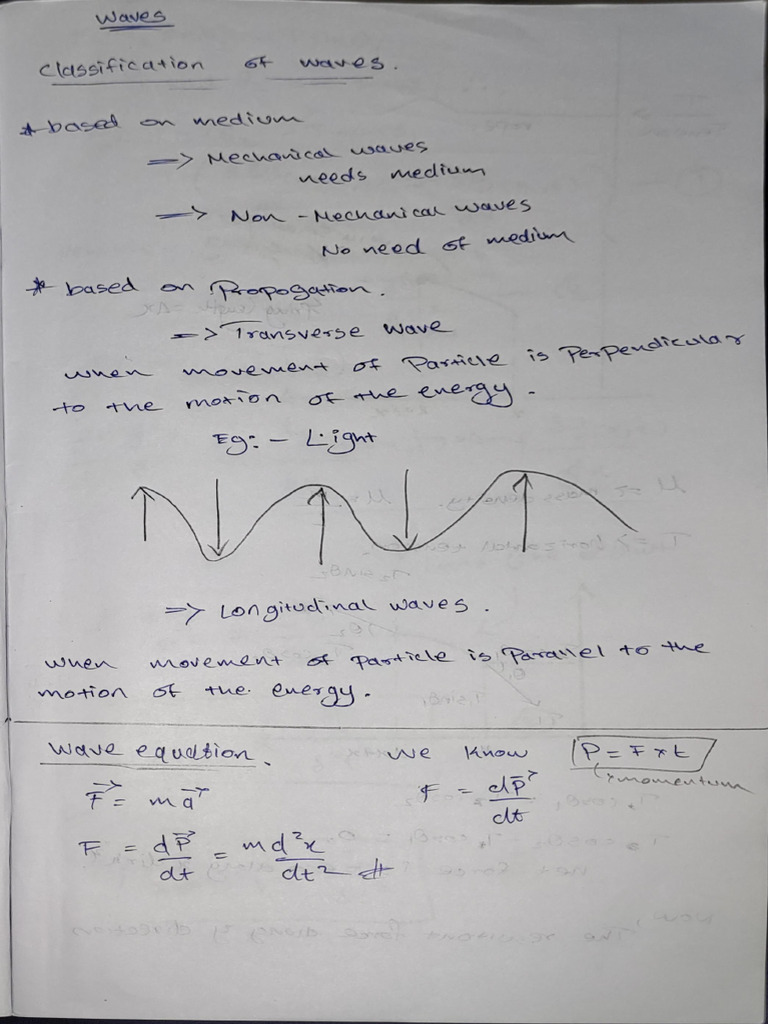 Waves
Classification of waves.
* based on medium
=> Mechanical waves
needs medium
=> Non - Mechanical waves
No need of medium
* based on Propogation.
=> Transverse wave
when movement of Particle is Perpendicular
to the motion of the energy.
Eg:- Light
=> Longitudinal waves.
when movement of Particle is Parallel to the
motion of the energy.
Wave equation. We know P = F * t
momentum
F⃗ = m a⃗ F = dp⃗/dt
F = dP⃗/dt = m d²x/dt² #